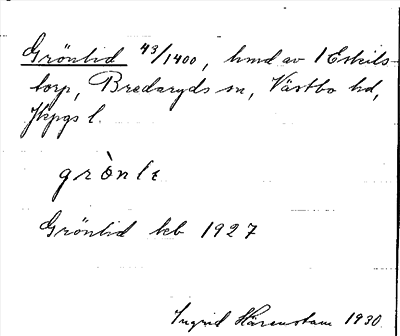 Grönlid 43/1400, hmd av 1 Eskils-
torp, Bredaryds sn, Västbo hd,
Jkpgs l.
grònle
Grönlid kb 1927
Ingrid Härenstam 1930